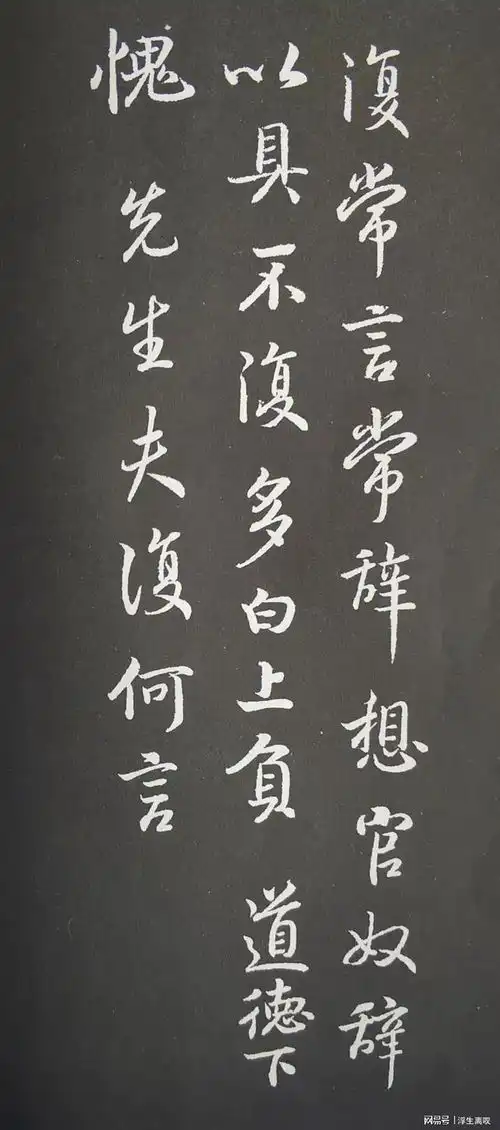 復常言常辞想官奴辞
以具不復多白上負 道德下
愧 先生夫復何言
网易号 | 浮生离叹